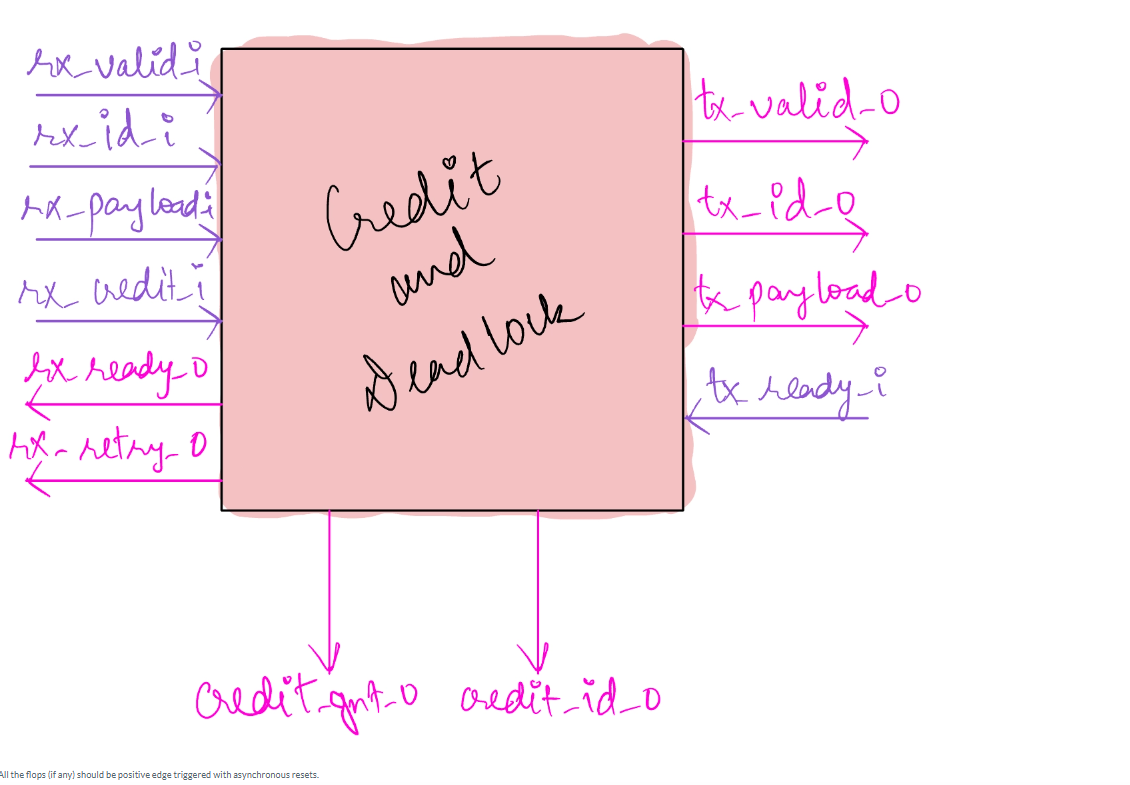 rx_valid_i
rx_id_i
rx_payload_i
rx_credit_i
rx_ready_o
rx_retry_o
Credit
and
Deadlock
tx_valid_o
tx_id_o
tx_payload_o
tx_ready_i
credit_gnt_o
credit_id_o
All the flops (if any) should be positive edge triggered with asynchronous resets.